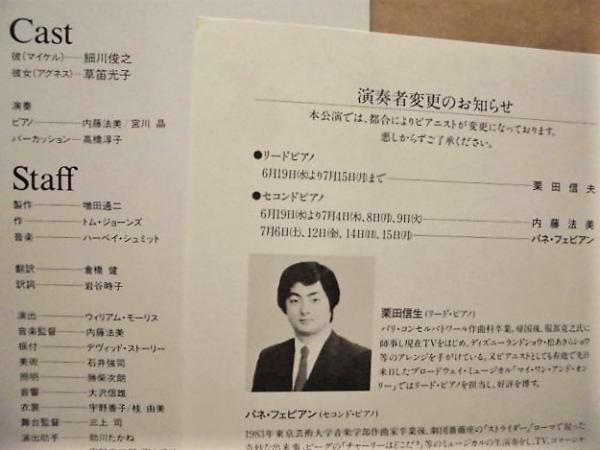 Cast
彼(マイケル)── 細川俊之
彼女(アグネス)── 草笛光子
演奏
ピアノ── 内藤法美/宮川 晶
パーカッション── 高橋淳子
Staff
製作── 増田通二
作── トム・ジョーンズ
音楽── ハーベイ・シュミット
翻訳── 倉橋 健
訳詞── 岩谷時子
演出── ウィリアム・モーリス
音楽監督── 内藤法美
振付── デヴィッド・ストーリー
美術── 石井強司
照明── 勝柴次朗
音響── 大沢信雄
衣裳── 宇野善子/桂 由美
舞台監督── 三上 司
演出助手── 助川たかね
演奏者変更のお知らせ
本公演では、都合によりピアニストが変更になっております。
悪しからずご了承ください。
●リードピアノ
6月19日(水)より7月15日(月)まで── 栗田信夫
●セコンドピアノ
6月19日(水)より7月4日(木)、8日(月)、9日(火)── 内藤法美
7月6日(土)、12日(金)、14日(日)、15日(月)── パネ・フェビアン
栗田信生(リード・ピアノ)
パリ・コンセルバトワール作曲科卒業。帰国後、服部克之氏に
師事し現在TVをはじめ、ディズニーランドショウ・松あきらショウ
等のアレンジを手がけている。又ピアニストとしても有能で先日
来日したブロードウェイ・ミュージカル「マイ・ワン・アンド・オン
リー」ではリード・ピアノを担当し、好評を博す。
パネ・フェビアン(セコンド・ピアノ)
1983年東京芸術大学音楽学部作曲家卒業後、劇団薔薇座の「ストライダー」「ローマで起った
奇妙な出来事」ピーグの「チャーリーはどこだ?」等のミュージカルの生演奏をし、TV、コマーシャ